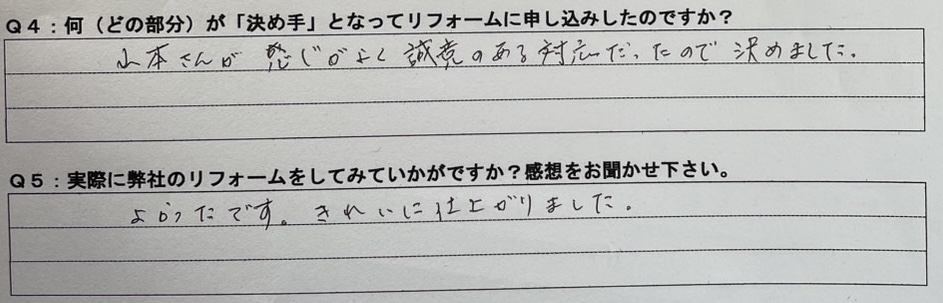 Q4：何（どの部分）が「決め手」となってリフォームに申し込みしたのですか？
山本さんが感じがよく誠意のある対応だったので決めました。
Q5：実際に弊社のリフォームをしてみていかがですか？感想をお聞かせ下さい。
よかったです。きれいに仕上がりました。